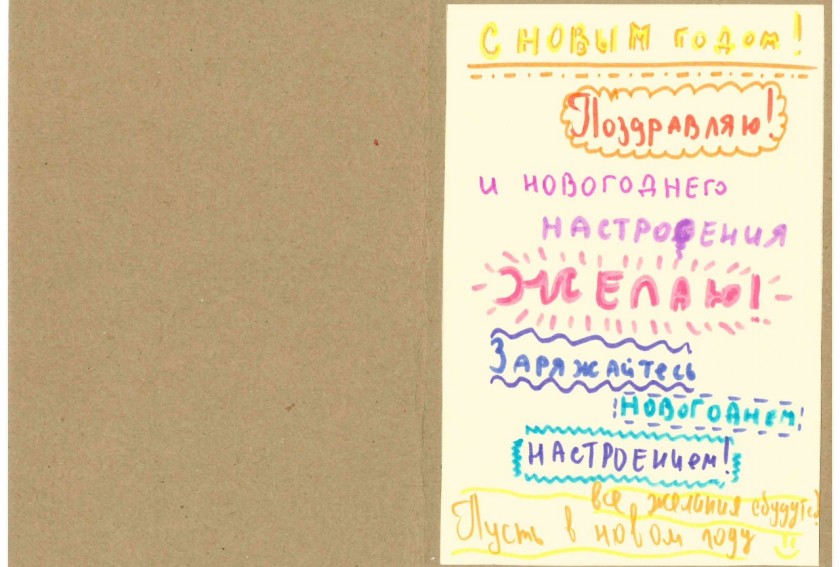 С НОВЫМ ГОДОМ!
Поздравляю!
и новогоднего
настроения
ЖЕЛАЮ!
Заряжайтесь
новогоднем
настроением!
все желиния сбудутся!
Пусть в новом году